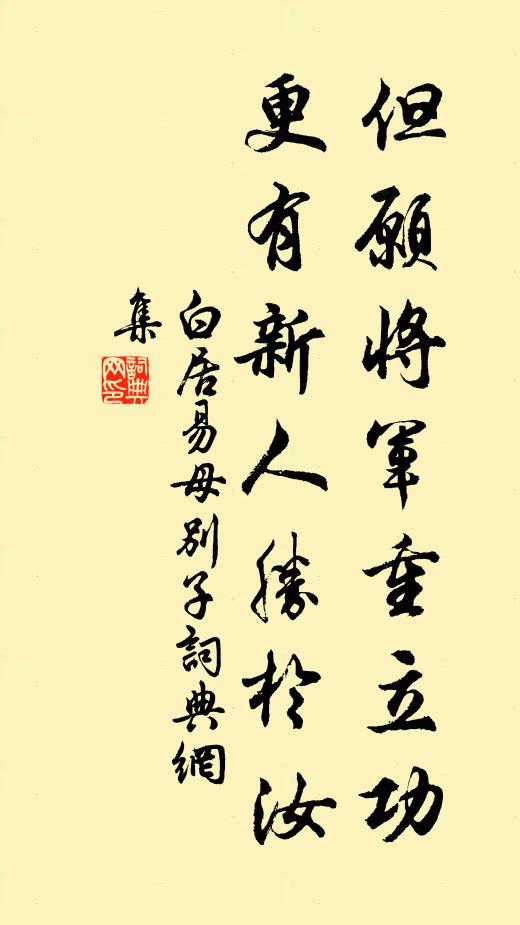 但願將軍重立功
更有新人勝於汝
白居易母別子詞典網
集
詞典
网印